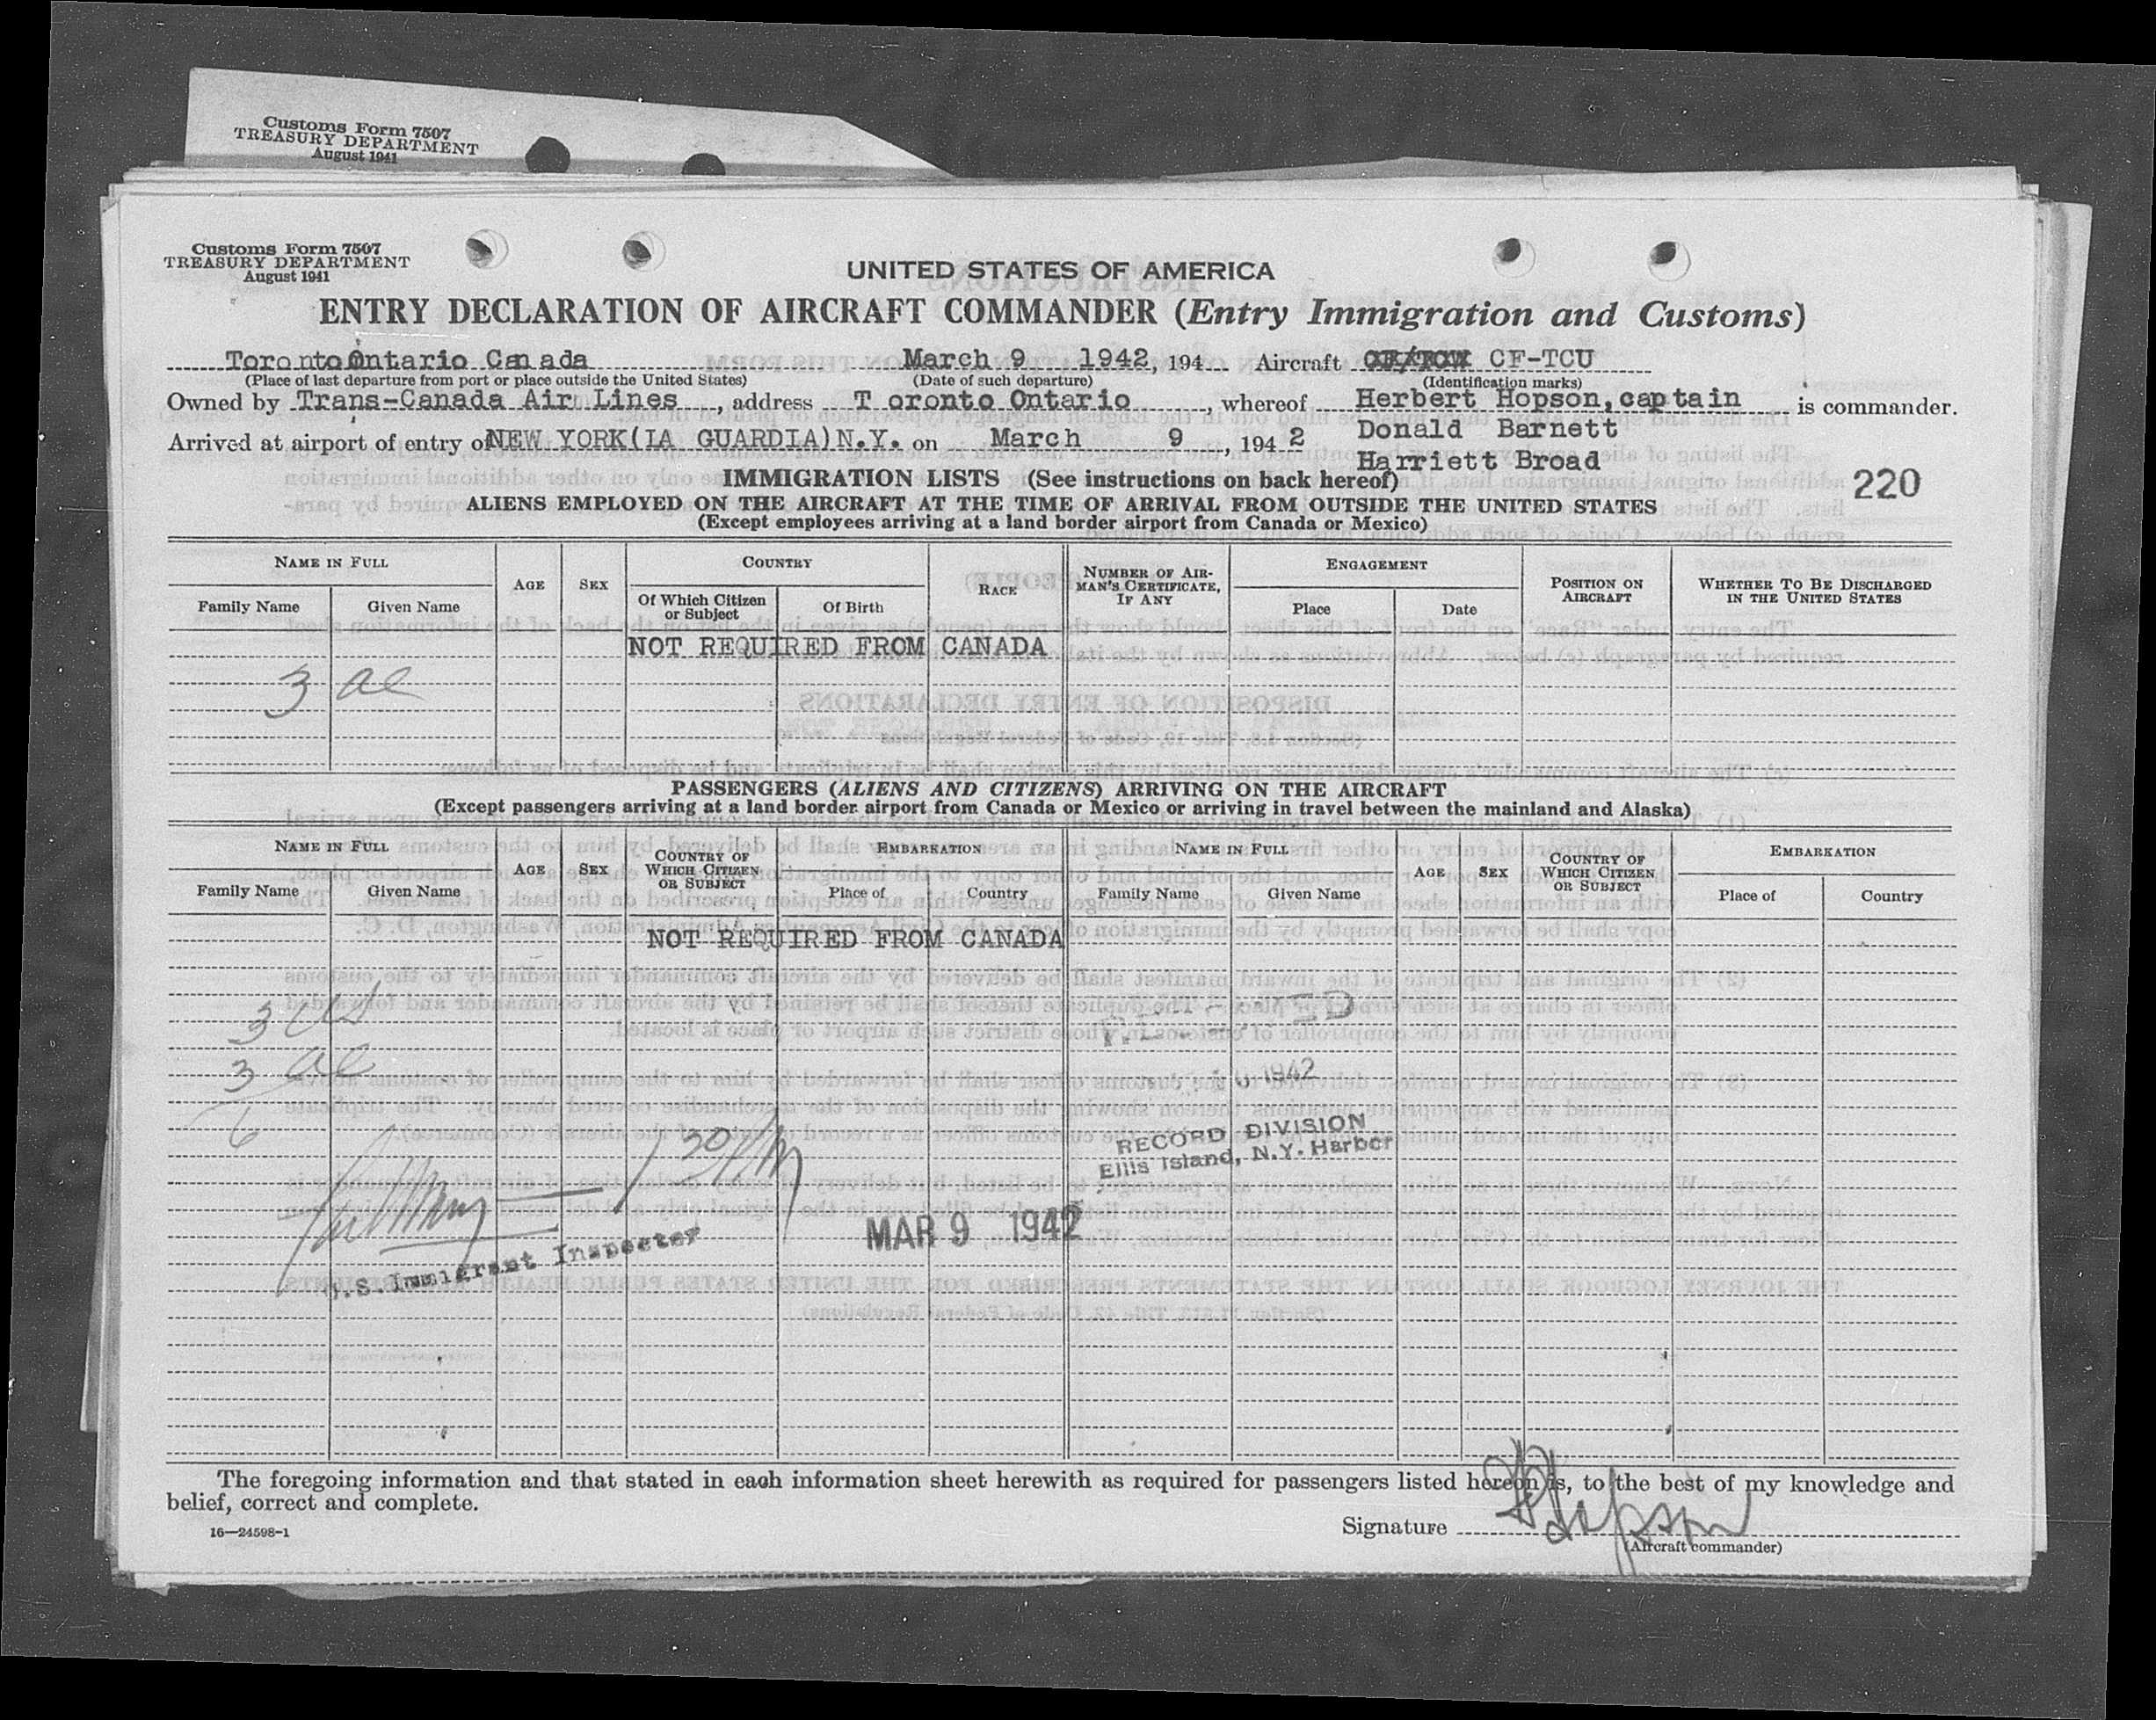 Customs Form 7507
TREASURY DEPARTMENT
August 1941
Customs Form 7507
TREASURY DEPARTMENT
August 1941
UNITED STATES OF AMERICA
ENTRY DECLARATION OF AIRCRAFT COMMANDER (Entry Immigration and Customs)
Toronto Ontario Canada March 9 1942, 194 Aircraft CF-TCU
(Place of last departure from port or place outside the United States) (Date of such departure) (Identification marks)
Owned by Trans-Canada Air Lines, address T oronto Ontario, whereof Herbert Hopson, captain is commander.
Arrived at airport of entry of NEW YORK(LA GUARDIA)N.Y. on March 9, 194 2 Donald Barnett
Harriett Broad
IMMIGRATION LISTS (See instructions on back hereof) 220
ALIENS EMPLOYED ON THE AIRCRAFT AT THE TIME OF ARRIVAL FROM OUTSIDE THE UNITED STATES
(Except employees arriving at a land border airport from Canada or Mexico)
NAME IN FULL AGE SEX COUNTRY RACE NUMBER OF AIRMAN'S CERTIFICATE, IF ANY ENGAGEMENT POSITION ON AIRCRAFT WHETHER TO BE DISCHARGED IN THE UNITED STATES
Family Name Given Name Of Which Citizen or Subject Of Birth Place Date
NOT REQUIRED FROM CANADA
3 ae
PASSENGERS (ALIENS AND CITIZENS) ARRIVING ON THE AIRCRAFT
(Except passengers arriving at a land border airport from Canada or Mexico or arriving in travel between the mainland and Alaska)
NAME IN FULL AGE SEX COUNTRY OF WHICH CITIZEN OR SUBJECT EMBARKATION NAME IN FULL AGE SEX COUNTRY OF WHICH CITIZEN OR SUBJECT EMBARKATION
Family Name Given Name Place of Country Family Name Given Name Place of Country
NOT REQUIRED FROM CANADA
3
3 ae
6
1942
RECORD DIVISION
Ellis Island, N.Y. Harbor
MAR 9 1942
U.S. Immigrant Inspector
The foregoing information and that stated in each information sheet herewith as required for passengers listed hereon is, to the best of my knowledge and
belief, correct and complete.
16—24598-1
Signature H Hopson
(Aircraft commander)